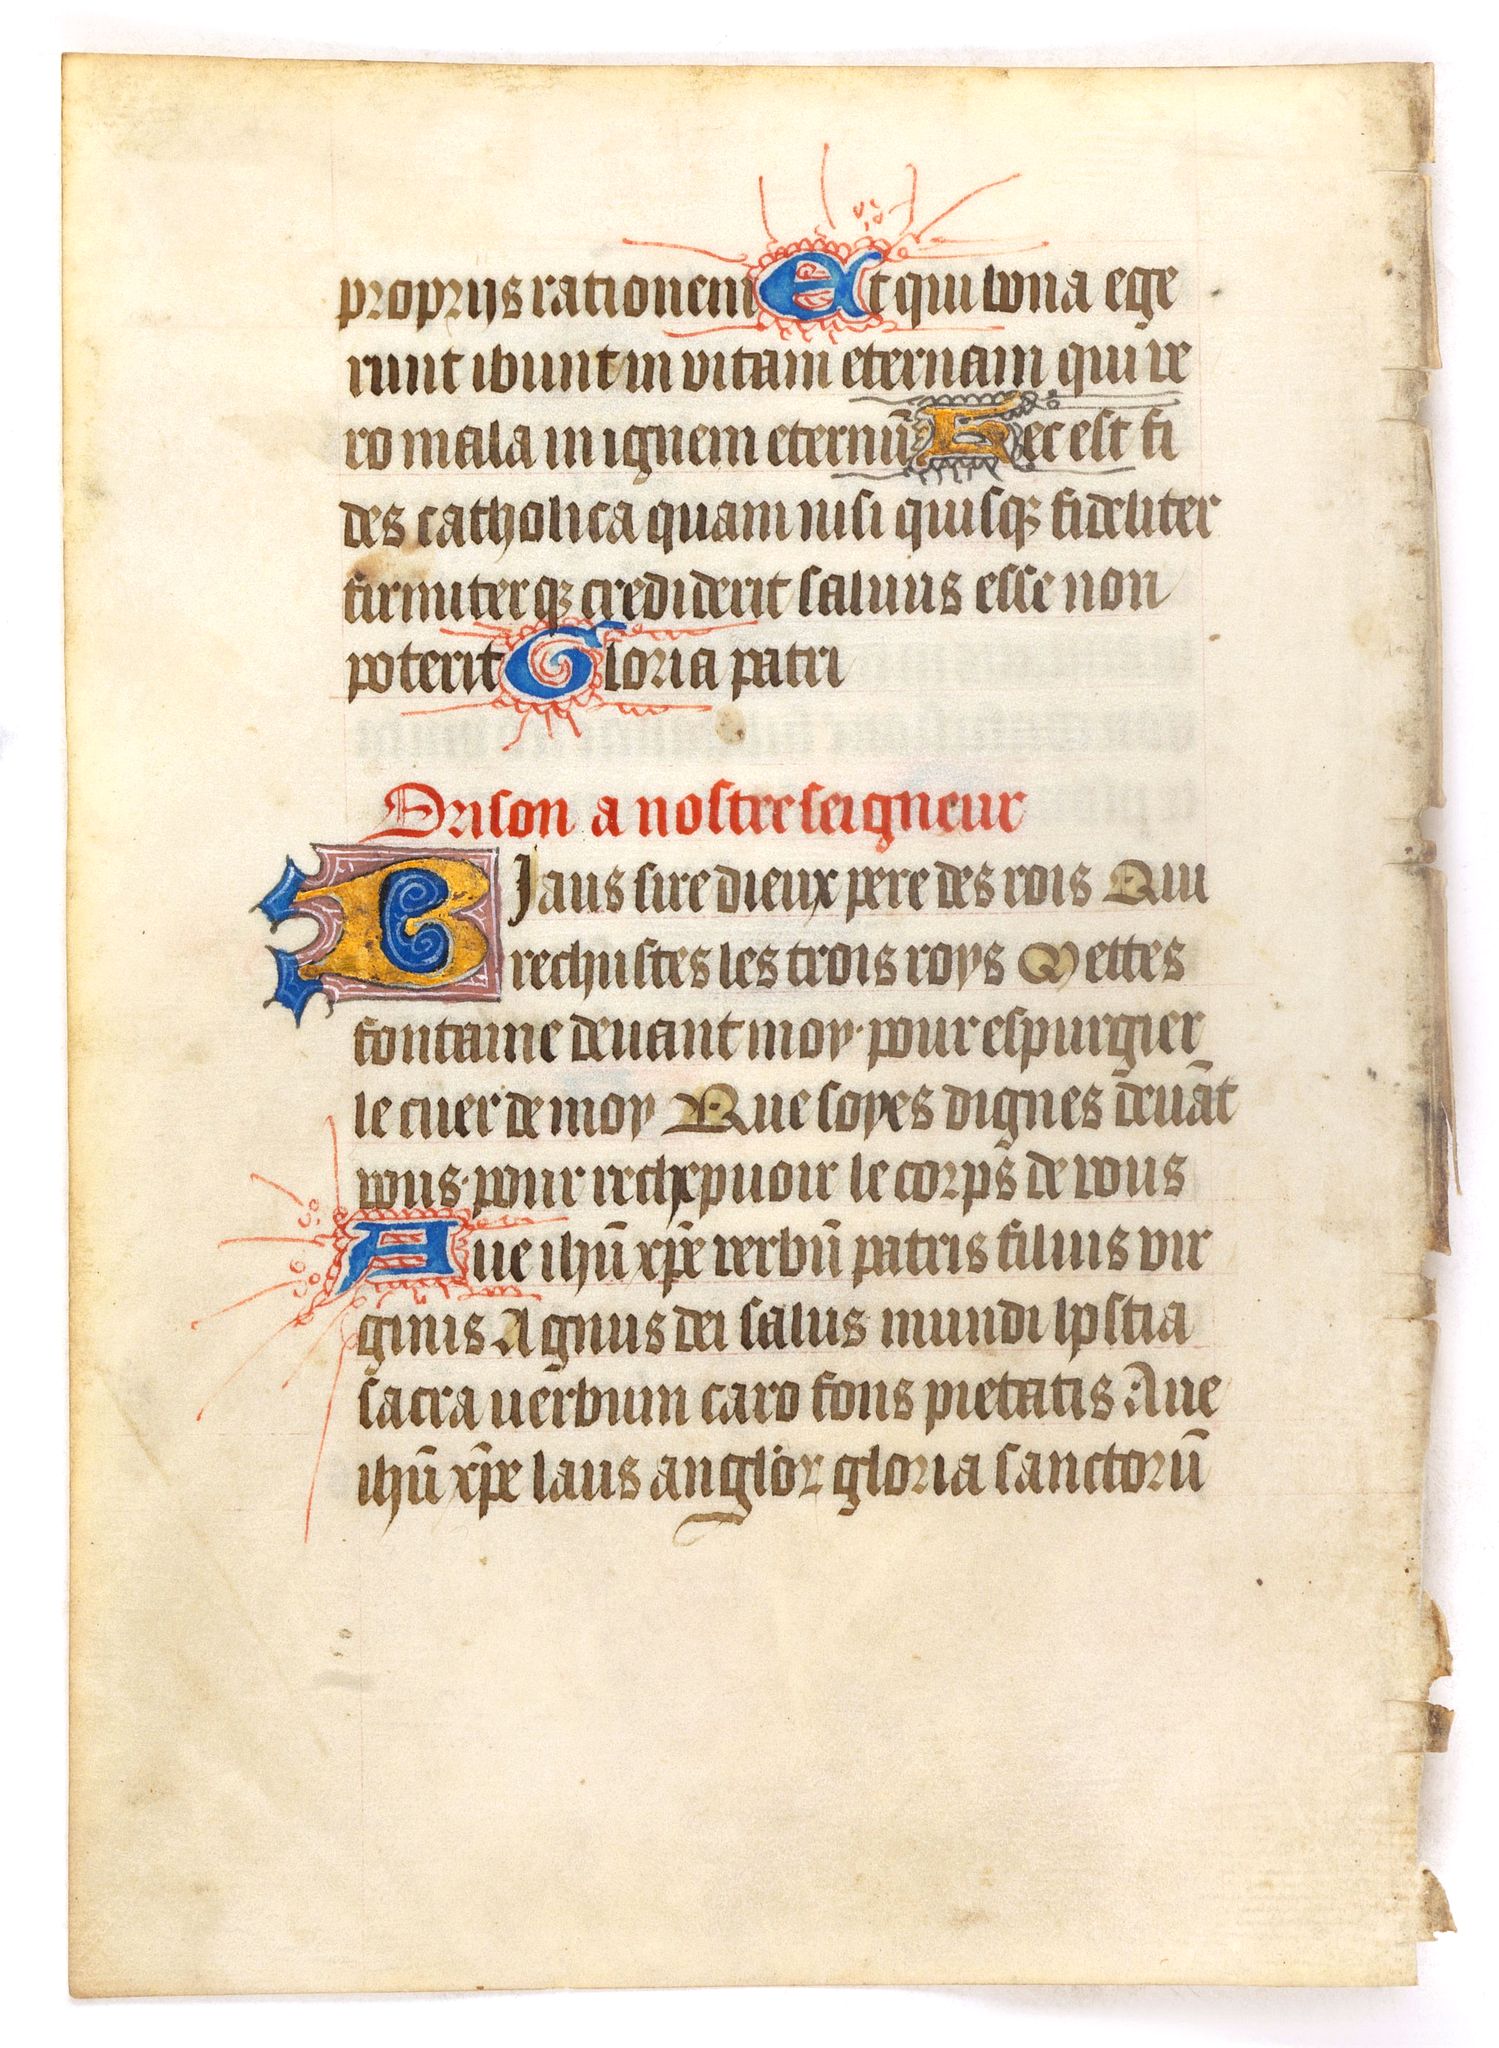 proprijs rationem Et qui bona ege
runt ibunt in vitam eternam qui ve
ro mala in ignem eternū Hec est fi
des catholica quam nisi quisqꝫ fideliter
firmiterqꝫ crediderit saluus esse non
poterit Gloria patri
Orison a nostre seigneur
Biaus sire dieux pere des rois Qui
rechustes les trois roys Mettes
fontaine deuant moy·pour espurgier
le cuer de moy Que soyes dignes deuāt
vous·pour rechepuoir le corps de vous
Aue ihū xp̄e verbū patris filius vir
ginis Agnus dei salus mundi hostia
sacra uerbum caro fons pietatis Aue
ihū xp̄e laus anglōꝝ gloria sanctorū